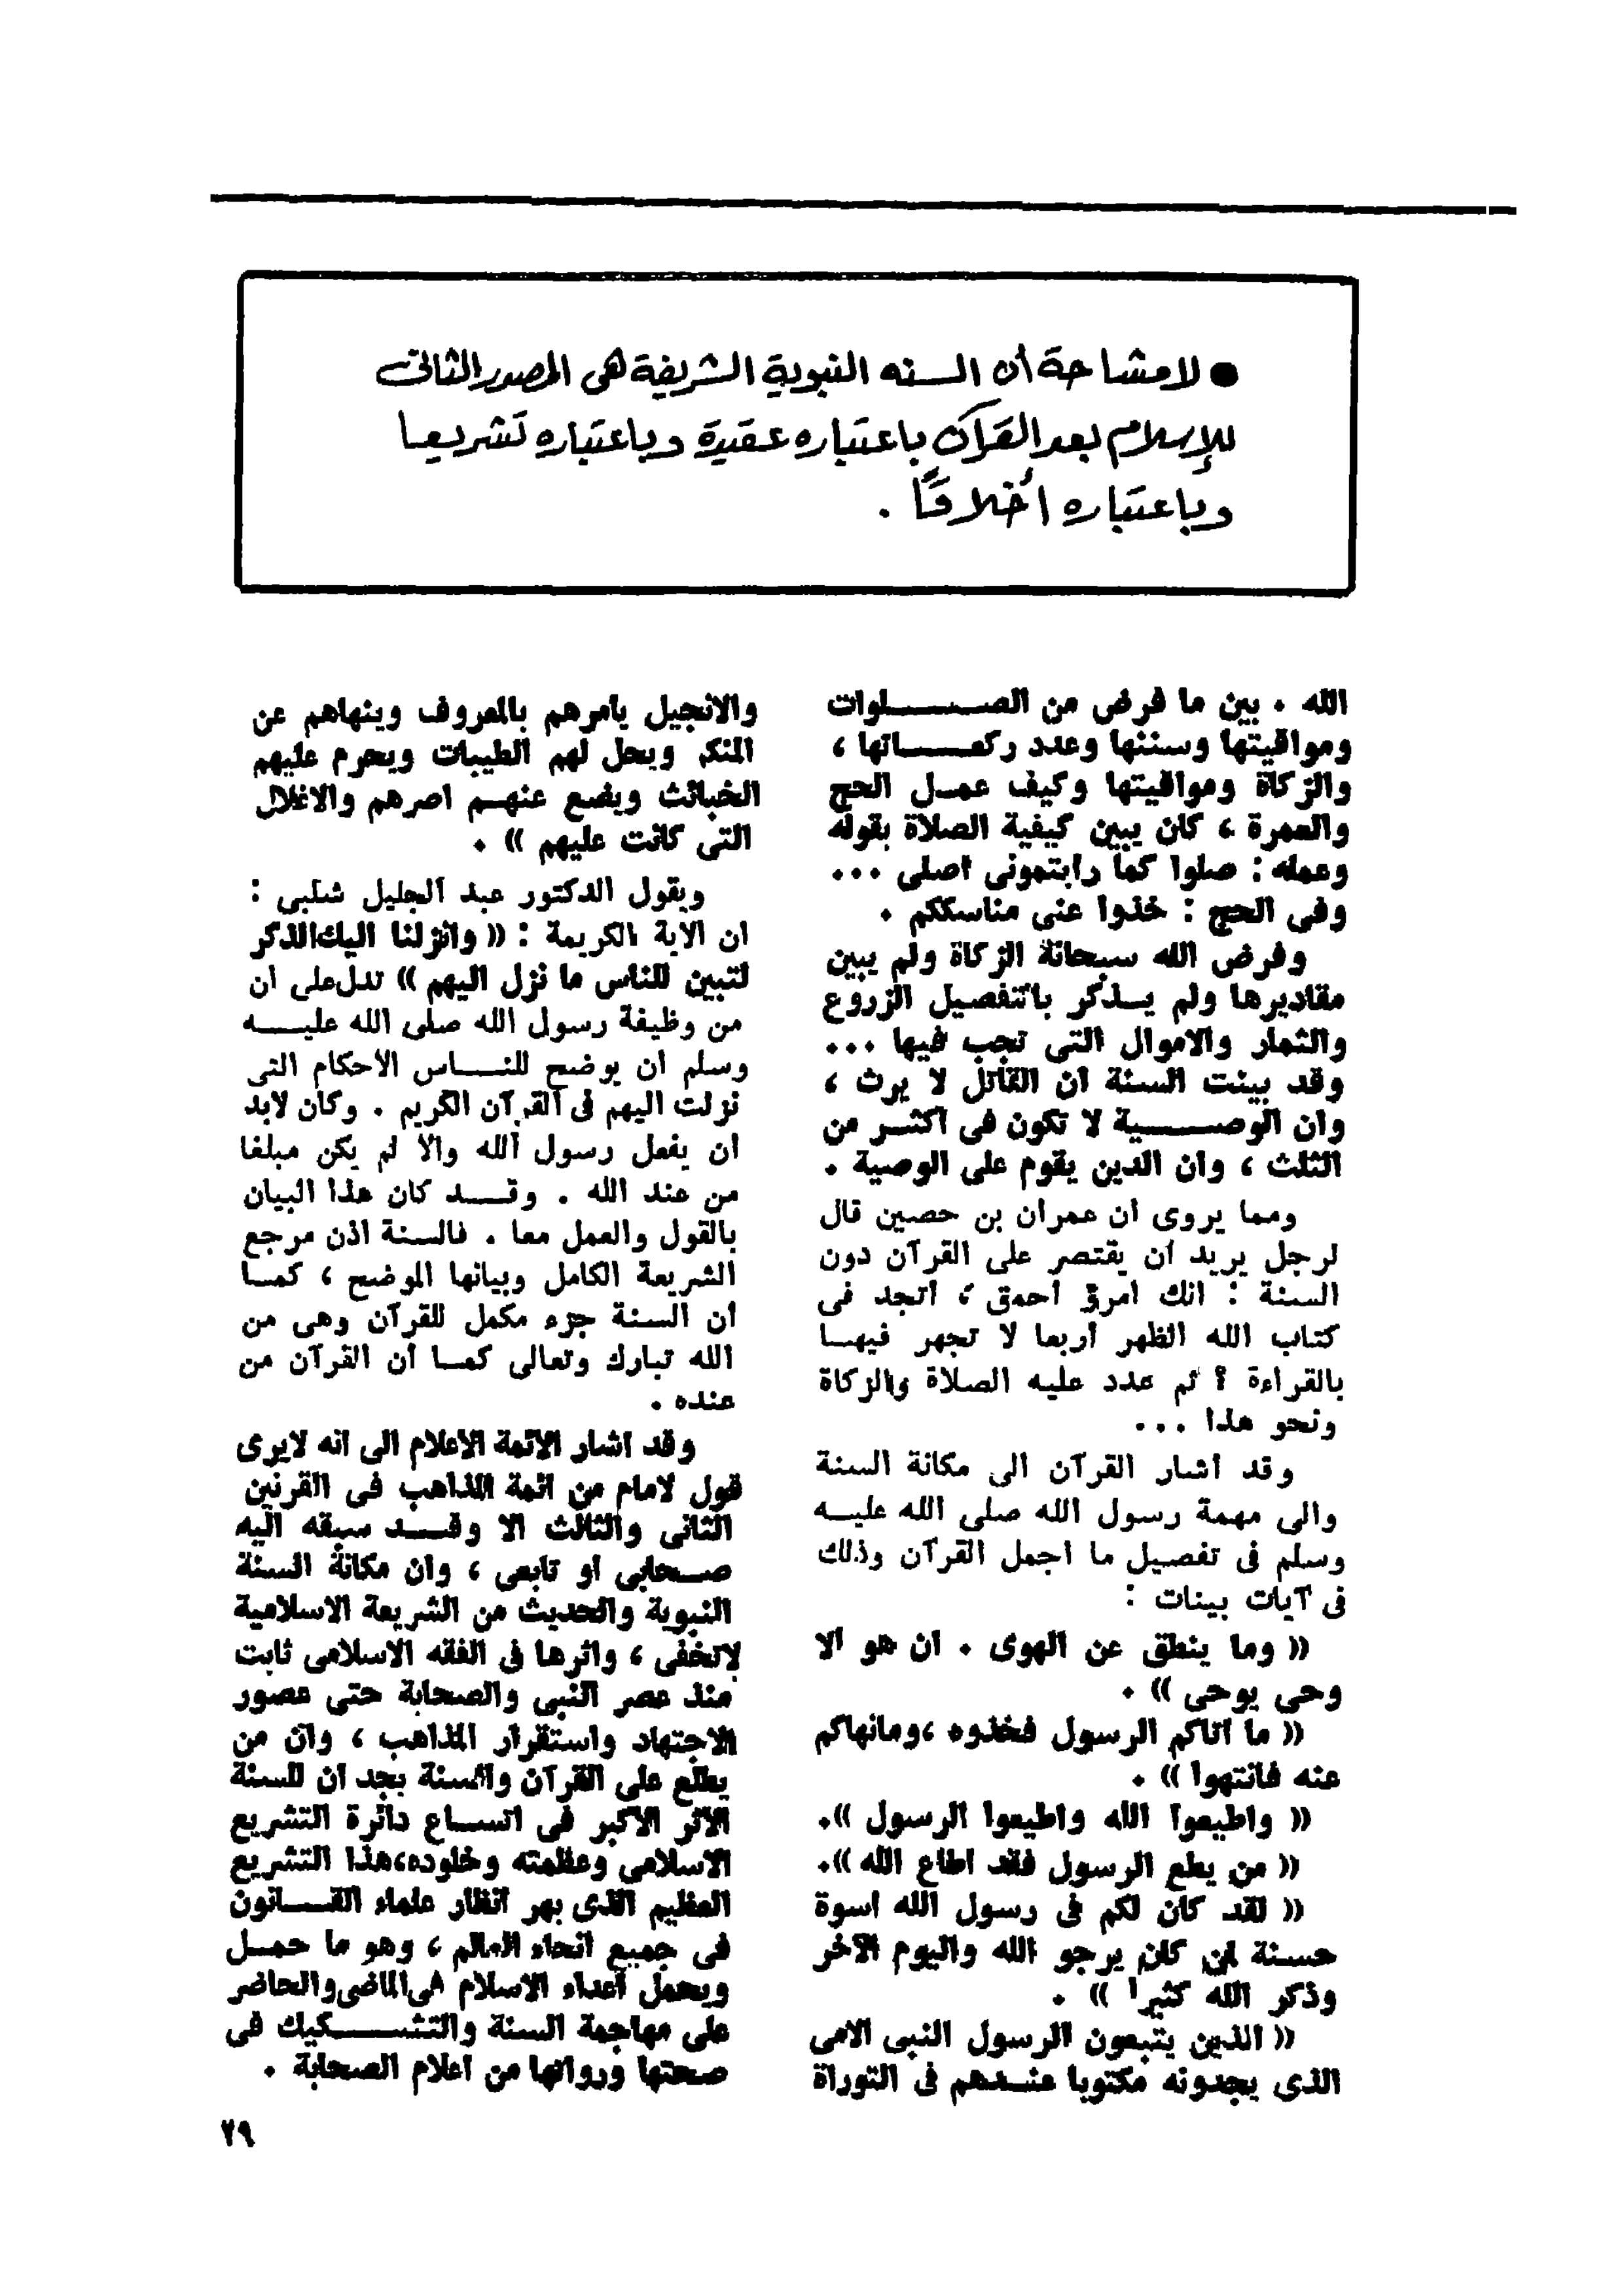 ● لا مشاحة أن السنه النبوية الشريفة هى المصدر الثانى
للإسلام بعد القرآن باعتباره عقيدة وباعتباره تشريعا
وباعتباره أخلاقاً .
الله . بين ما فرض من الصلوات
ومواقيتها وسننها وعدد ركعاتها ،
والزكاة ومواقيتها وكيف عمل الحج
والعمرة ، كان يبين كيفية الصلاة بقوله
وعمله : صلوا كما رايتمونى اصلى ...
وفى الحج : خذوا عنى مناسككم .
وفرض الله سبحانه الزكاة ولم يبين
مقاديرها ولم يذكر بالتفصيل الزروع
والثمار والاموال التى تجب فيها ...
وقد بينت السنة ان القاتل لا يرث ،
وان الوصية لا تكون فى اكثر من
الثلث ، وان الدين يقوم على الوصية .
ومما يروى ان عمران بن حصين قال
لرجل يريد ان يقتصر على القرآن دون
السنة : انك امرؤ احمق ، اتجد فى
كتاب الله الظهر اربعا لا تجهر فيها
بالقراءة ؟ ثم عدد عليه الصلاة والزكاة
ونحو هذا ...
وقد اشار القرآن الى مكانة السنة
والى مهمة رسول الله صلى الله عليه
وسلم فى تفصيل ما اجمل القرآن وذلك
فى آيات بينات :
(( وما ينطق عن الهوى . ان هو الا
وحى يوحى )) .
(( ما اتاكم الرسول فخذوه ،ومانهاكم
عنه فانتهوا )) .
(( واطيعوا الله واطيعوا الرسول )).
(( من يطع الرسول فقد اطاع الله )).
(( لقد كان لكم فى رسول الله اسوة
حسنة لمن كان يرجو الله واليوم الآخر
وذكر الله كثيرا )) .
(( الذين يتبعون الرسول النبى الامى
الذى يجدونه مكتوبا عندهم فى التوراة
والانجيل يامرهم بالمعروف وينهاهم عن
المنكر ويحل لهم الطيبات ويحرم عليهم
الخبائث ويضع عنهم اصرهم والاغلال
التى كانت عليهم )) .
ويقول الدكتور عبد الجليل شلبى :
ان الآية الكريمة : (( وانزلنا اليك الذكر
لتبين للناس ما نزل اليهم )) تدل على ان
من وظيفة رسول الله صلى الله عليه
وسلم ان يوضح للناس الاحكام التى
نزلت اليهم فى القرآن الكريم . وكان لابد
ان يفعل رسول الله والا لم يكن مبلغا
من عند الله . وقد كان هذا البيان
بالقول والعمل معا . فالسنة اذن مرجع
الشريعة الكامل وبيانها الموضح ، كما
ان السنة جزء مكمل للقرآن وهى من
الله تبارك وتعالى كما ان القرآن من
عنده .
وقد اشار الائمة الاعلام الى انه لايرى
قول لامام من ائمة المذاهب فى القرنين
الثانى والثالث الا وقد سبقه اليه
صحابى او تابعى ، وان مكانة السنة
النبوية والحديث من الشريعة الاسلامية
لاتخفى ، واثرها فى الفقه الاسلامى ثابت
منذ عصر النبى والصحابة حتى عصور
الاجتهاد واستقرار المذاهب ، وان من
يطلع على القرآن والسنة يجد ان للسنة
الاثر الاكبر فى اتساع دائرة التشريع
الاسلامى وعظمته وخلوده،هذا التشريع
العظيم الذى بهر انظار علماء القانون
فى جميع انحاء العالم ، وهو ما حمل
ويحمل اعداء الاسلام فى الماضى والحاضر
على مهاجمة السنة والتشكيك فى
صحتها ورواتها من اعلام الصحابة .
٢٩